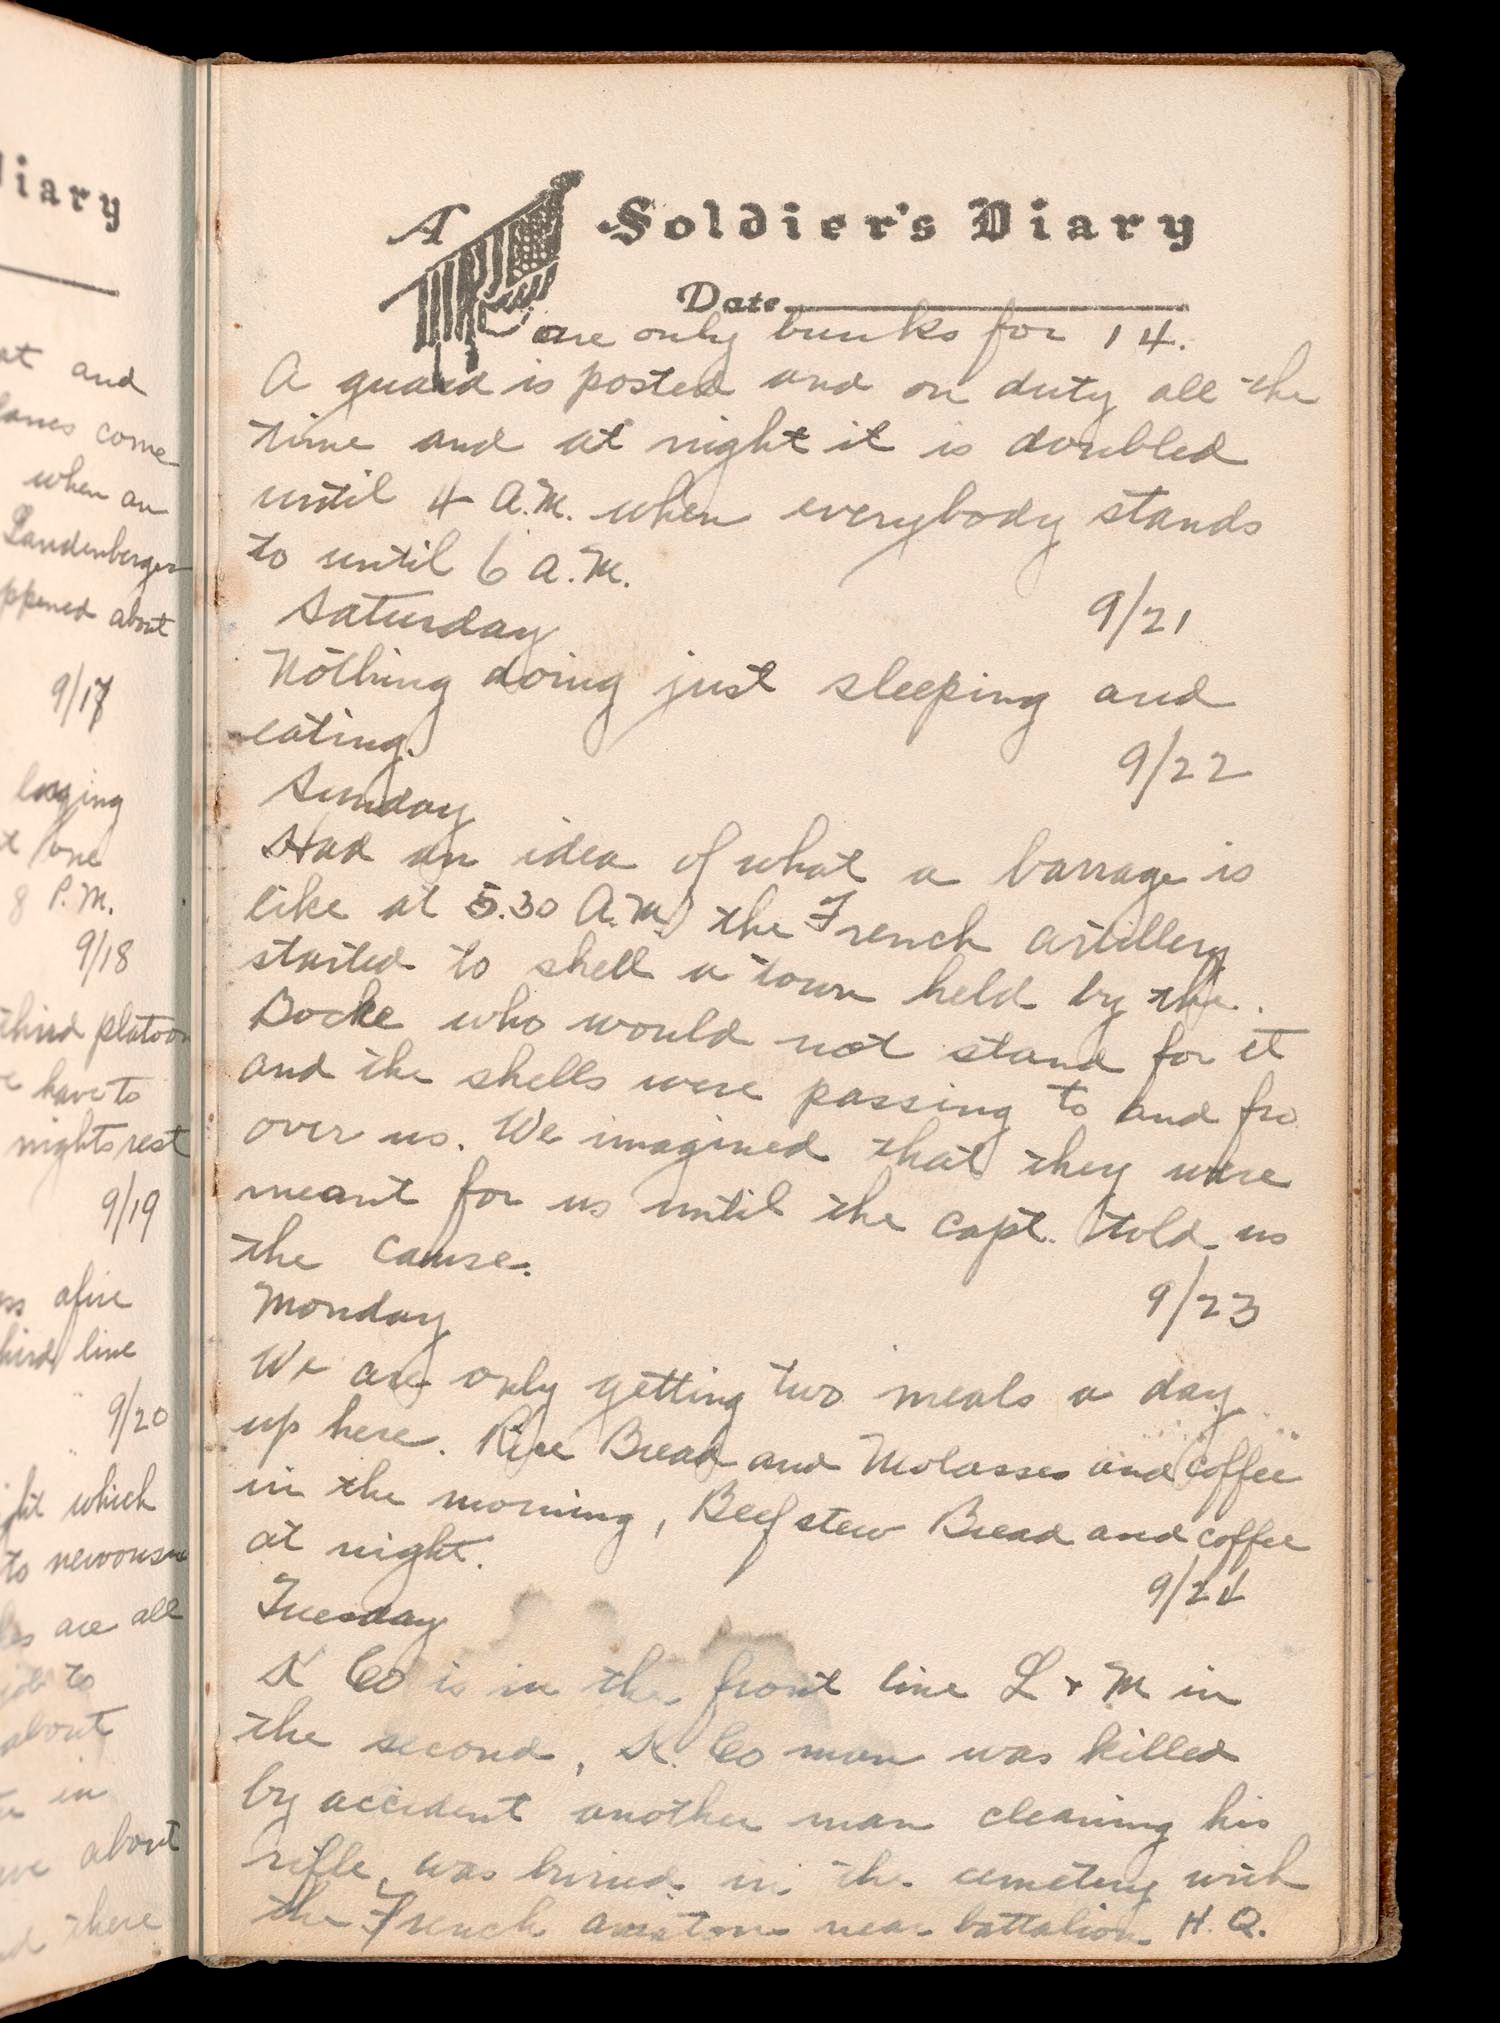 iary
at and
lanes come
when an
Landenberger
ppened about
9/17
loging
t one
8 P.M.
9/18
third platoon
e have to
nights rest
9/19
ss afire
hird line
9/20
ght which
to nervousn
les are all
job to
about
in
ve about
d there
A Soldier's Diary
Date
are only bunks for 14.
A guard is posted and on duty all the
time and at night it is doubled
until 4 A.M. when everybody stands
to until 6 A.M.
Saturday 9/21
Nothing doing just sleeping and
eating.
Sunday 9/22
Had an idea of what a barrage is
like at 5.30 A.M. the French artillery
started to shell a town held by the
Bocke who would not stand for it
and the shells were passing to and fro
over us. We imagined that they were
meant for us until the Capt. told us
the cause.
Monday 9/23
We are only getting two meals a day
up here. Rice Bread and Molasses and coffee
in the morning, Beef stew Bread and coffee
at night.
Tuesday 9/24
K Co is in the front line L + M in
the second, K. Co man was killed
by accident another man cleaning his
rifle, was buried in the cemetery with
the French near battalion H.Q.